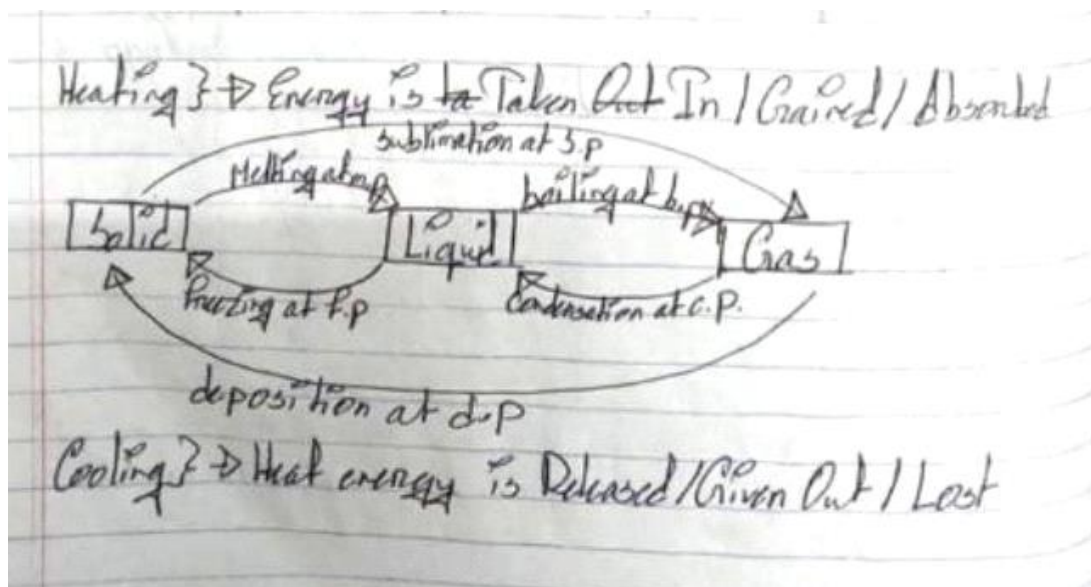 Heating } → Energy is ta Taken Out In / Gained / Absorbed
Sublimation at S.p
Melting at m.p
boiling at b.p
Solid
Liquid
Gas
freezing at f.p
Condensation at c.p.
deposition at d.p
Cooling } → Heat energy is Released / Given Out / Lost